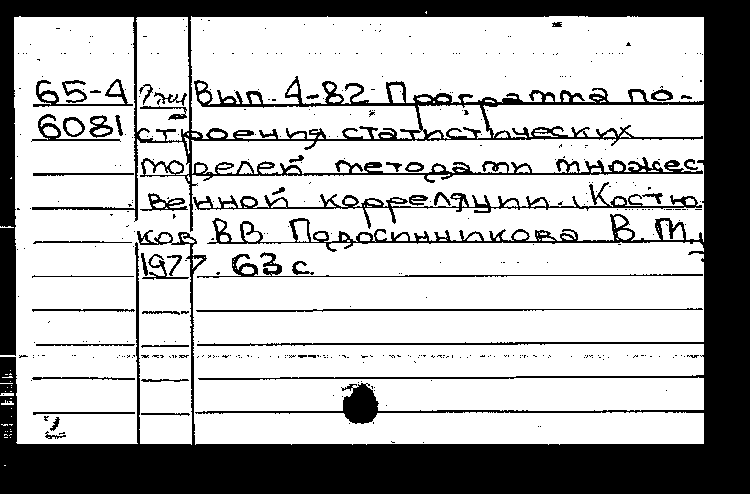 65-4 Вып. 4-82 Программа по-
6081 строения статистических
моделей методами множест
венной корреляции. (Костю
ков ВВ Подосинникова В.М.,
1977. 63 с.
2